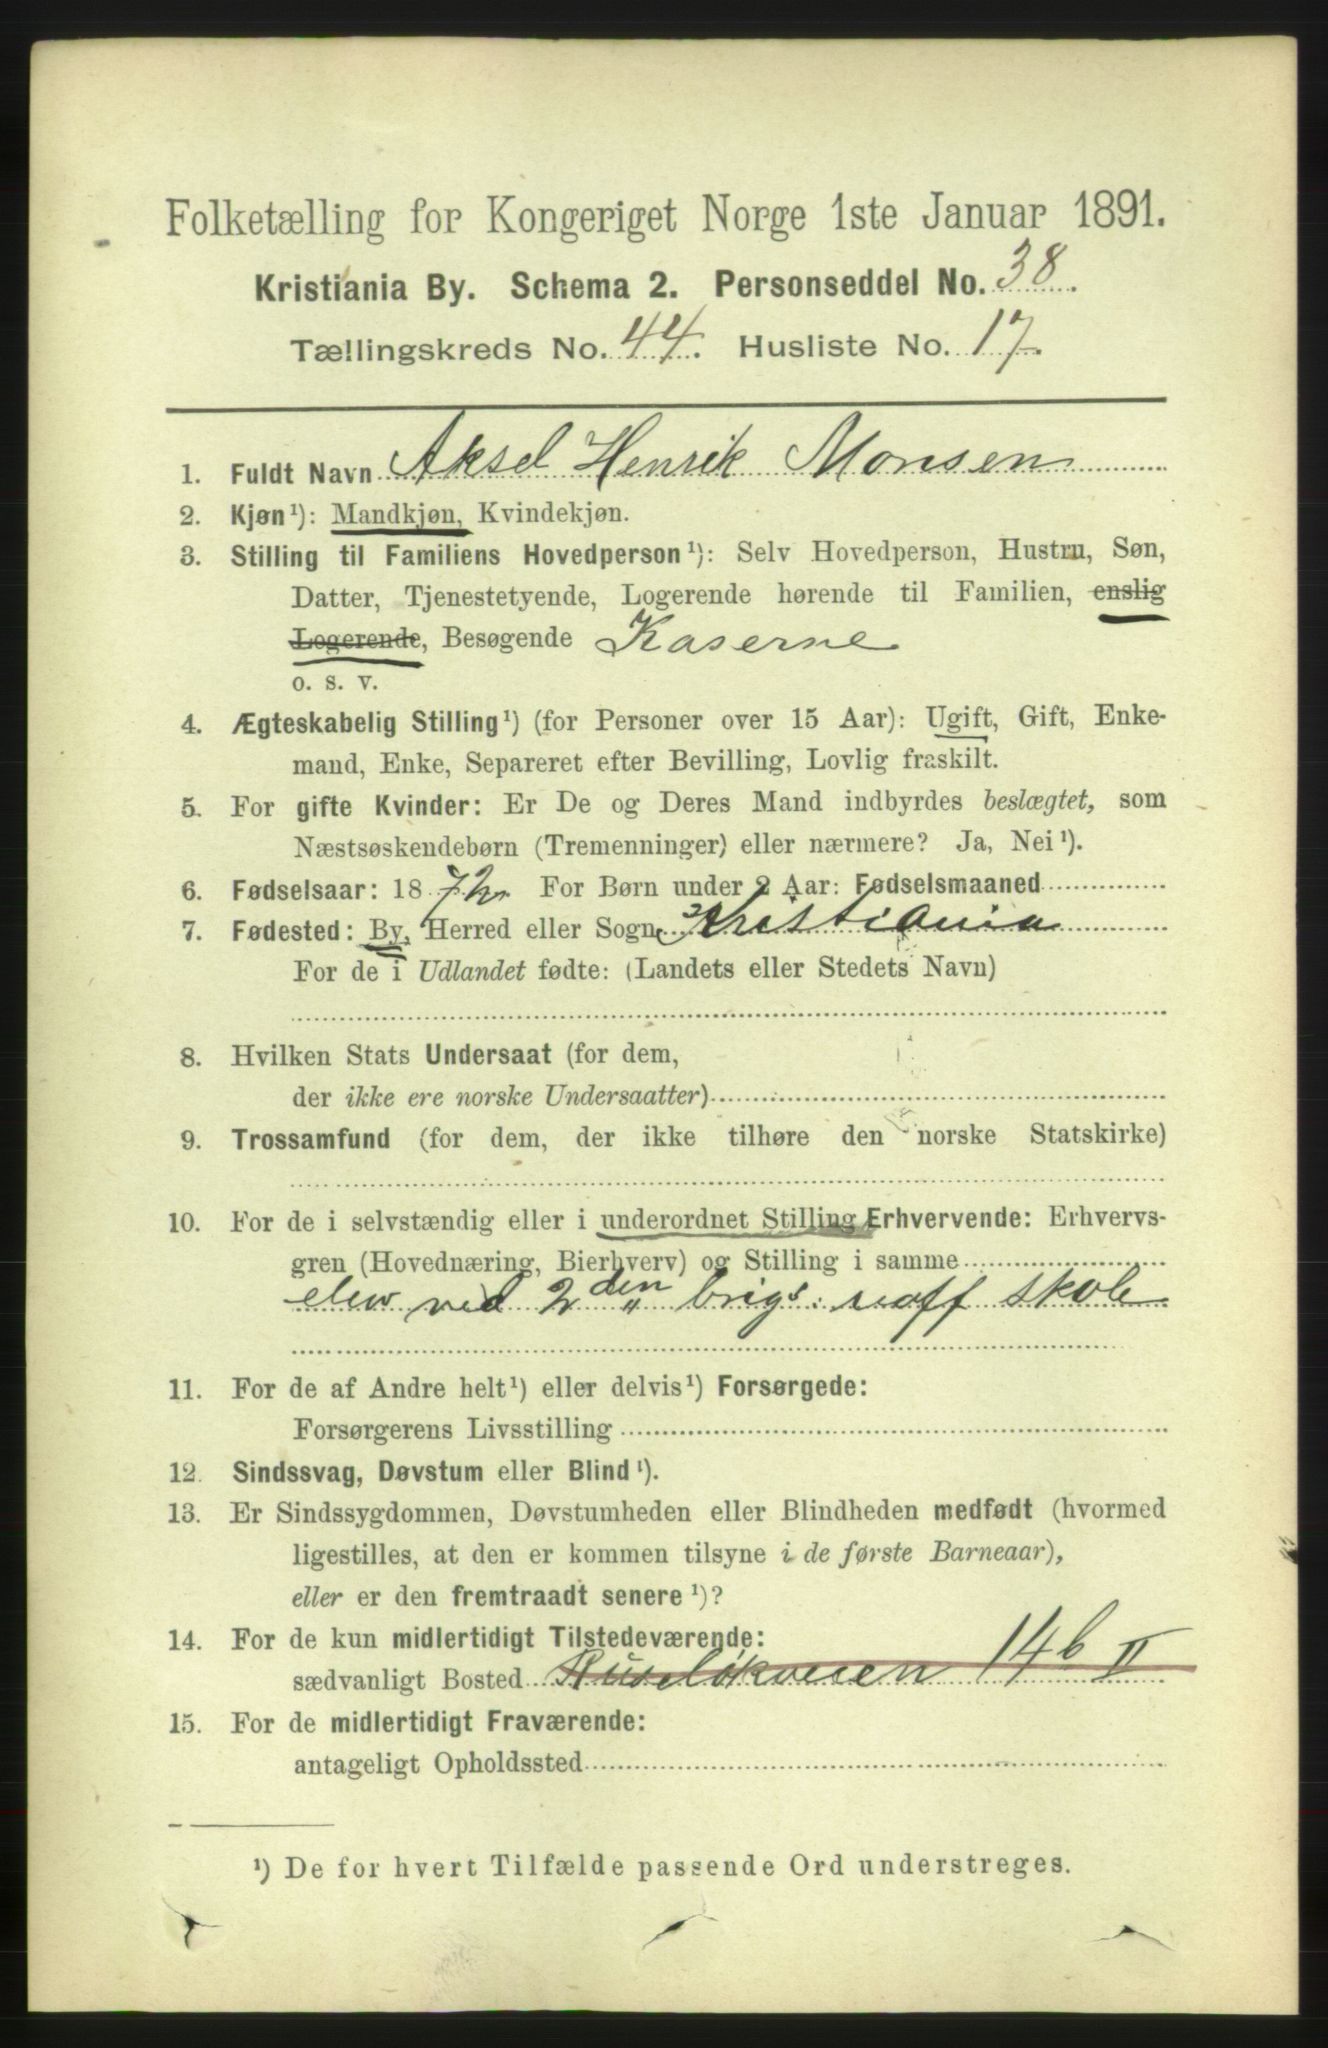 Folketælling for Kongeriget Norge 1ste Januar 1891.
Kristiania By. Schema 2. Personseddel No. 38.
Tællingskreds No. 44. Husliste No. 17.
1. Fuldt Navn Aksel Henrik Monsen
2. Kjøn¹): Mandkjøn, Kvindekjøn.
3. Stilling til Familiens Hovedperson¹): Selv Hovedperson, Hustru, Søn,
Datter, Tjenestetyende, Logerende hørende til Familien, enslig
Logerende, Besøgende Kaserne
o. s. v.
4. Ægteskabelig Stilling¹) (for Personer over 15 Aar): Ugift, Gift, Enke-
mand, Enke, Separeret efter Bevilling, Lovlig fraskilt.
5. For gifte Kvinder: Er De og Deres Mand indbyrdes beslægtet, som
Næstsøskendebørn (Tremenninger) eller nærmere? Ja, Nei¹).
6. Fødselsaar: 1872 For Børn under 2 Aar: Fødselsmaaned
7. Fødested: By, Herred eller Sogn Kristiania
For de i Udlandet fødte: (Landets eller Stedets Navn)
8. Hvilken Stats Undersaat (for dem,
der ikke ere norske Undersaatter)
9. Trossamfund (for dem, der ikke tilhøre den norske Statskirke)
10. For de i selvstændig eller i underordnet Stilling Erhvervende: Erhvervs-
gren (Hovednæring, Bierhverv) og Stilling i samme
elev ved 2den brigs. uoff skole
11. For de af Andre helt¹) eller delvis¹) Forsørgede:
Forsørgerens Livsstilling
12. Sindssvag, Døvstum eller Blind¹).
13. Er Sindssygdommen, Døvstumheden eller Blindheden medfødt (hvormed
ligestilles, at den er kommen tilsyne i de første Barneaar),
eller er den fremtraadt senere¹)?
14. For de kun midlertidigt Tilstedeværende:
sædvanligt Bosted Ruseløkveien 14b II
15. For de midlertidigt Fraværende:
antageligt Opholdssted
¹) De for hvert Tilfælde passende Ord understreges.